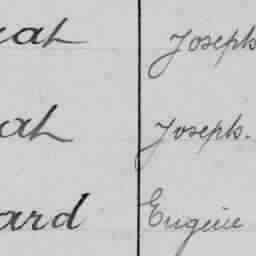 rah Joseph
ah Joseph.
ard Eugène